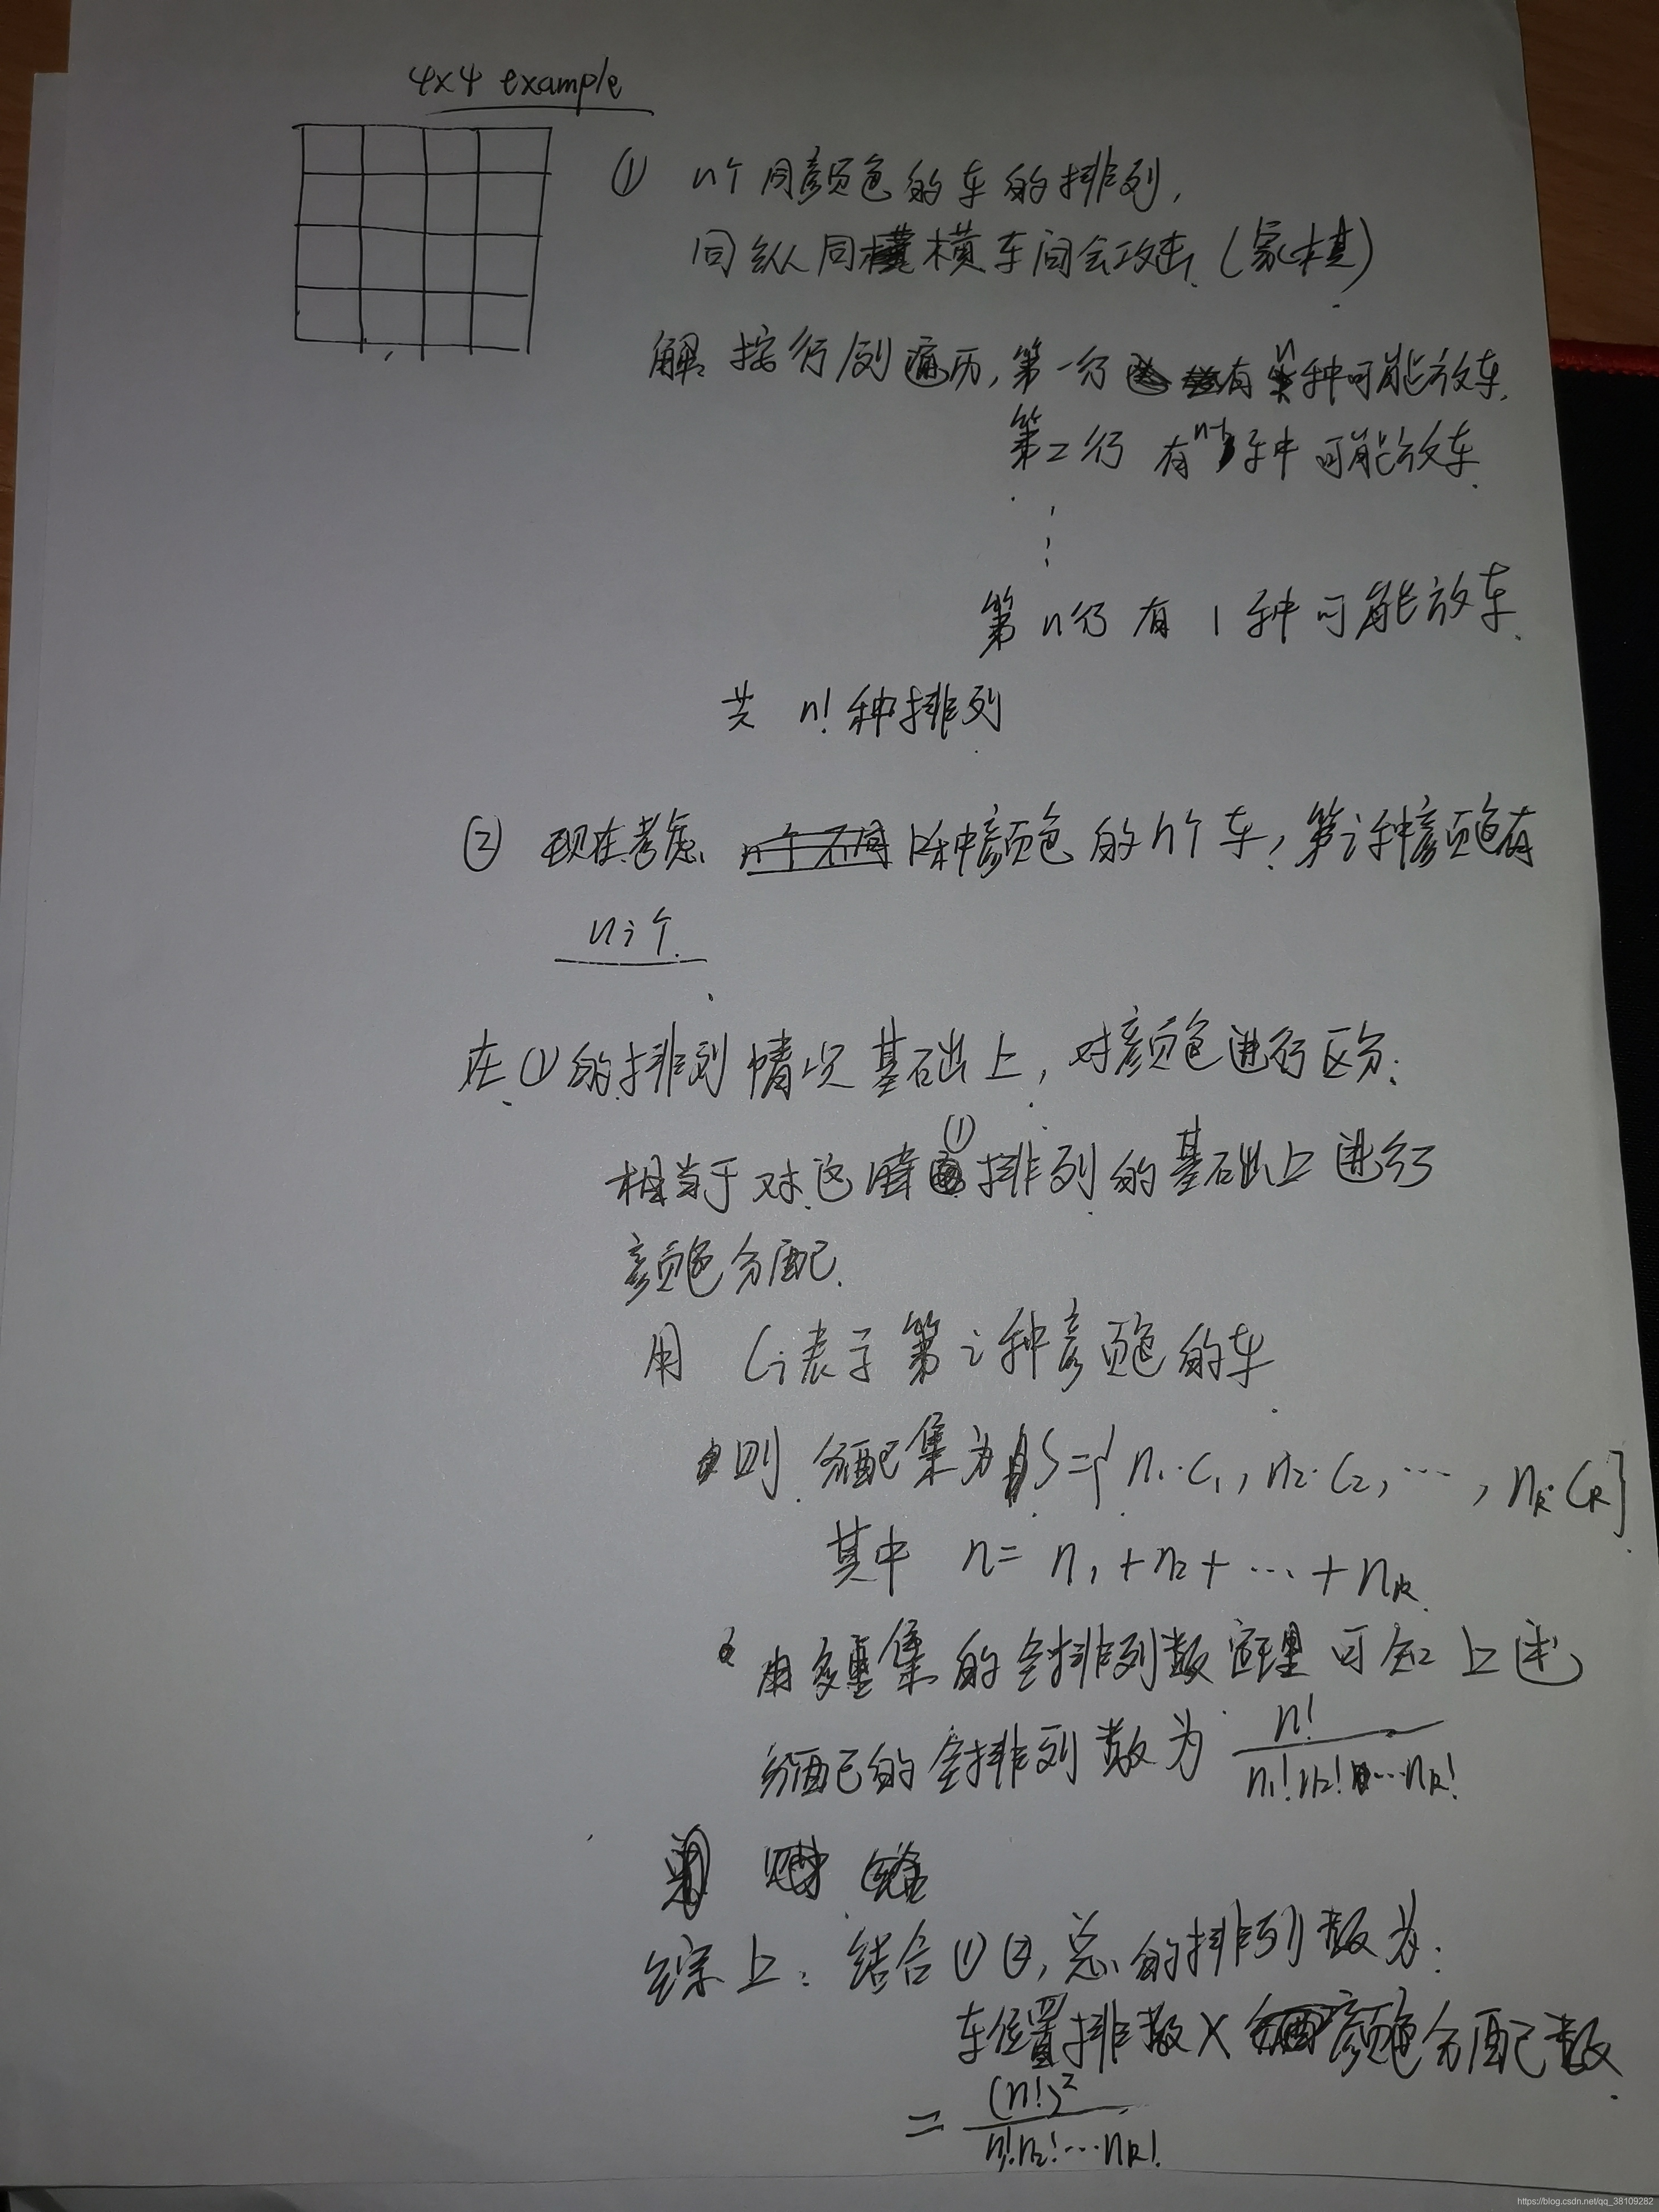 4×4 example
① n个同颜色的车的排列,
同纵同横车间会攻击 (象棋)
解: 按行/列遍历, 第一行有n种可能放车,
第二行 有n-1种可能放车
⋮
第n行 有 1 种可能放车.
共 n! 种排列
② 现在考虑 k种颜色的n个车, 第i种颜色有
ni个.
在①的排列情况基础上, 对颜色进行区分:
相当于对这 ① 排列的基础上进行
颜色分配.
用 Ci表示第i种颜色的车
则 分配集为 S={n1·C1, n2·C2, ⋯, nk·Ck}
其中 n= n1+n2+⋯+nk
由多重集的全排列数定理可知上述
分配的全排列数为 n!/(n1!n2!⋯nk!)
综上: 结合①②, 总的排列数为:
车位置排数×颜色分配数
= (n!)²/(n1!n2!⋯nk!)
https://blog.csdn.net/qq_38109282